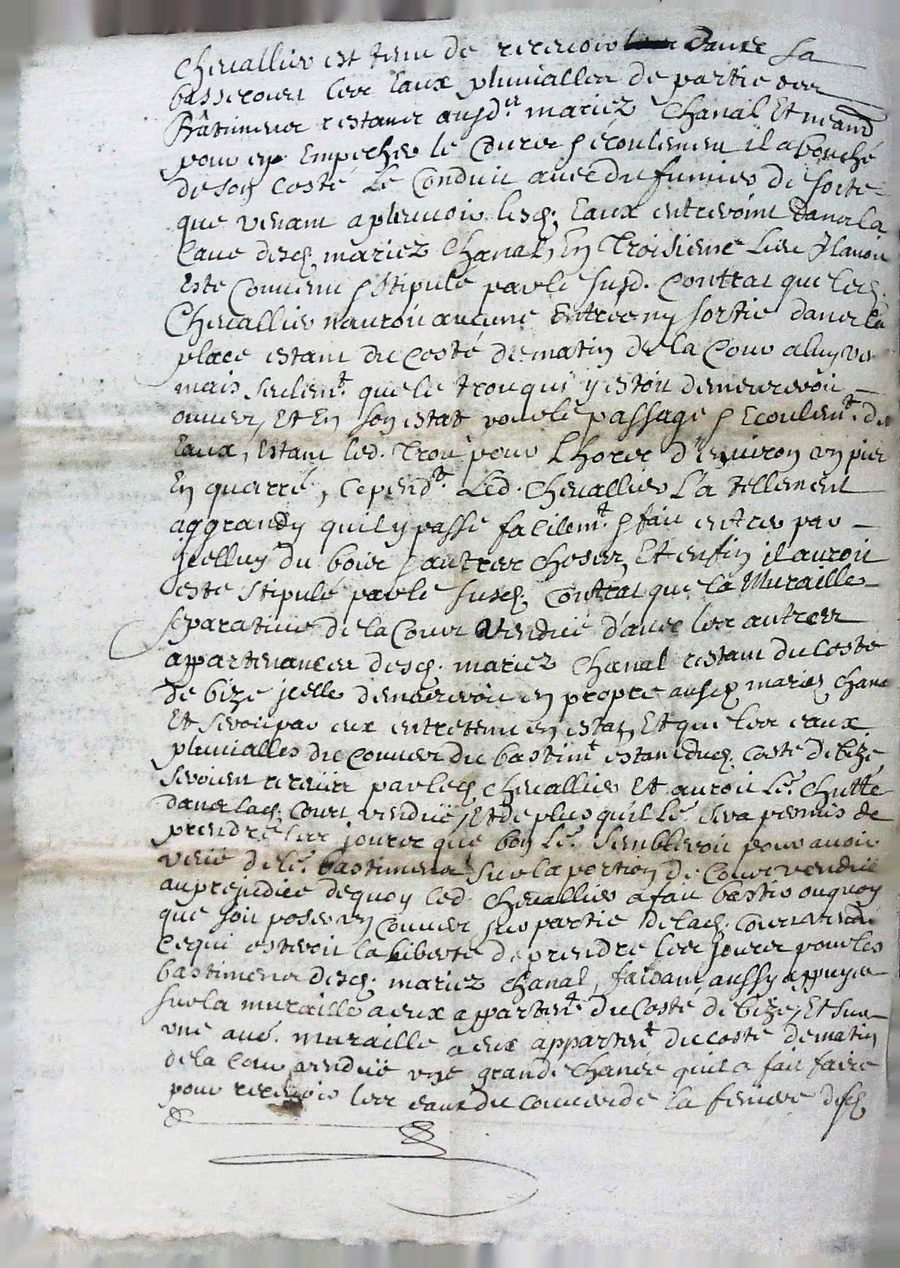 Chevallier est tenu de recevoir dans sa
bassecour les Eaux pluvialles de partie des
Bâtimens restans ausd.rs mariez Chanal Et neant
pour en Empecher le Cours & écoulement il a bouché
de son costé Le Conduit avec du fumier de sorte
que venant a pleuvoir lesd. Eaux entreroint dans la
Cave desd. mariez Chanal, En Troisieme Lieu Il avoit
Este Convenu & Stipulé par le susd. Contrat que led.
Chevallier n'auroit aucune Entree ny sortie dans la
place estant du Costé de matin de la Cour
mais seulem.t que le trou qui y estoit demeureroit
ouvert, Et En son estat pour le passage & Ecoulem.t d
Eaux, Estant led. Trou pour Lhors d'Environ un pied
En quarré, Cepend.t Led. Chevallier La tellement
aggrandy quil y passe facilem.t & fait entrer par
jcelluy du bois & autres choses, Et enfin il auroit
este stipulé par le susd. Contrat que la Muraille
separative de la Cour Venduë d'avec les autres
appartenances desd. mariez Chanal restant du Costé
de bize jcelle demeureroit en propre ausd mariez Chana
Et seroit par eux entretenue en estat, Et que les eaux
pluvialles du Couvert du bastim.t estant dud. Costé de bize
seroient receües par led. Chevallier Et auroit Lr. Chutte
dans lad. Cour venduë, Et de plus qu'il Lr. sera permis de
prendre les jours que bon Lr. sembleroit pour avoir
veüe de Lr. bastimens sur la portion de Cour venduë
au prejudice de quoy led. Chevallier a fait bastir ou quoy
que soit poser un Couvert sur partie de lad. Cour
Ce qui osteroit la Liberté de prendre les jours pour les
bastimens desd. mariez Chanal, faisant aussy appuyer
sur la muraille a eux appartent du Costé de bize, Et sur
une autr. muraille a eux appartent du costé de matin
de la Cour venduë une grande chanée quil a fait faire
pour recevoir les eaux du couvert de la feniere desd